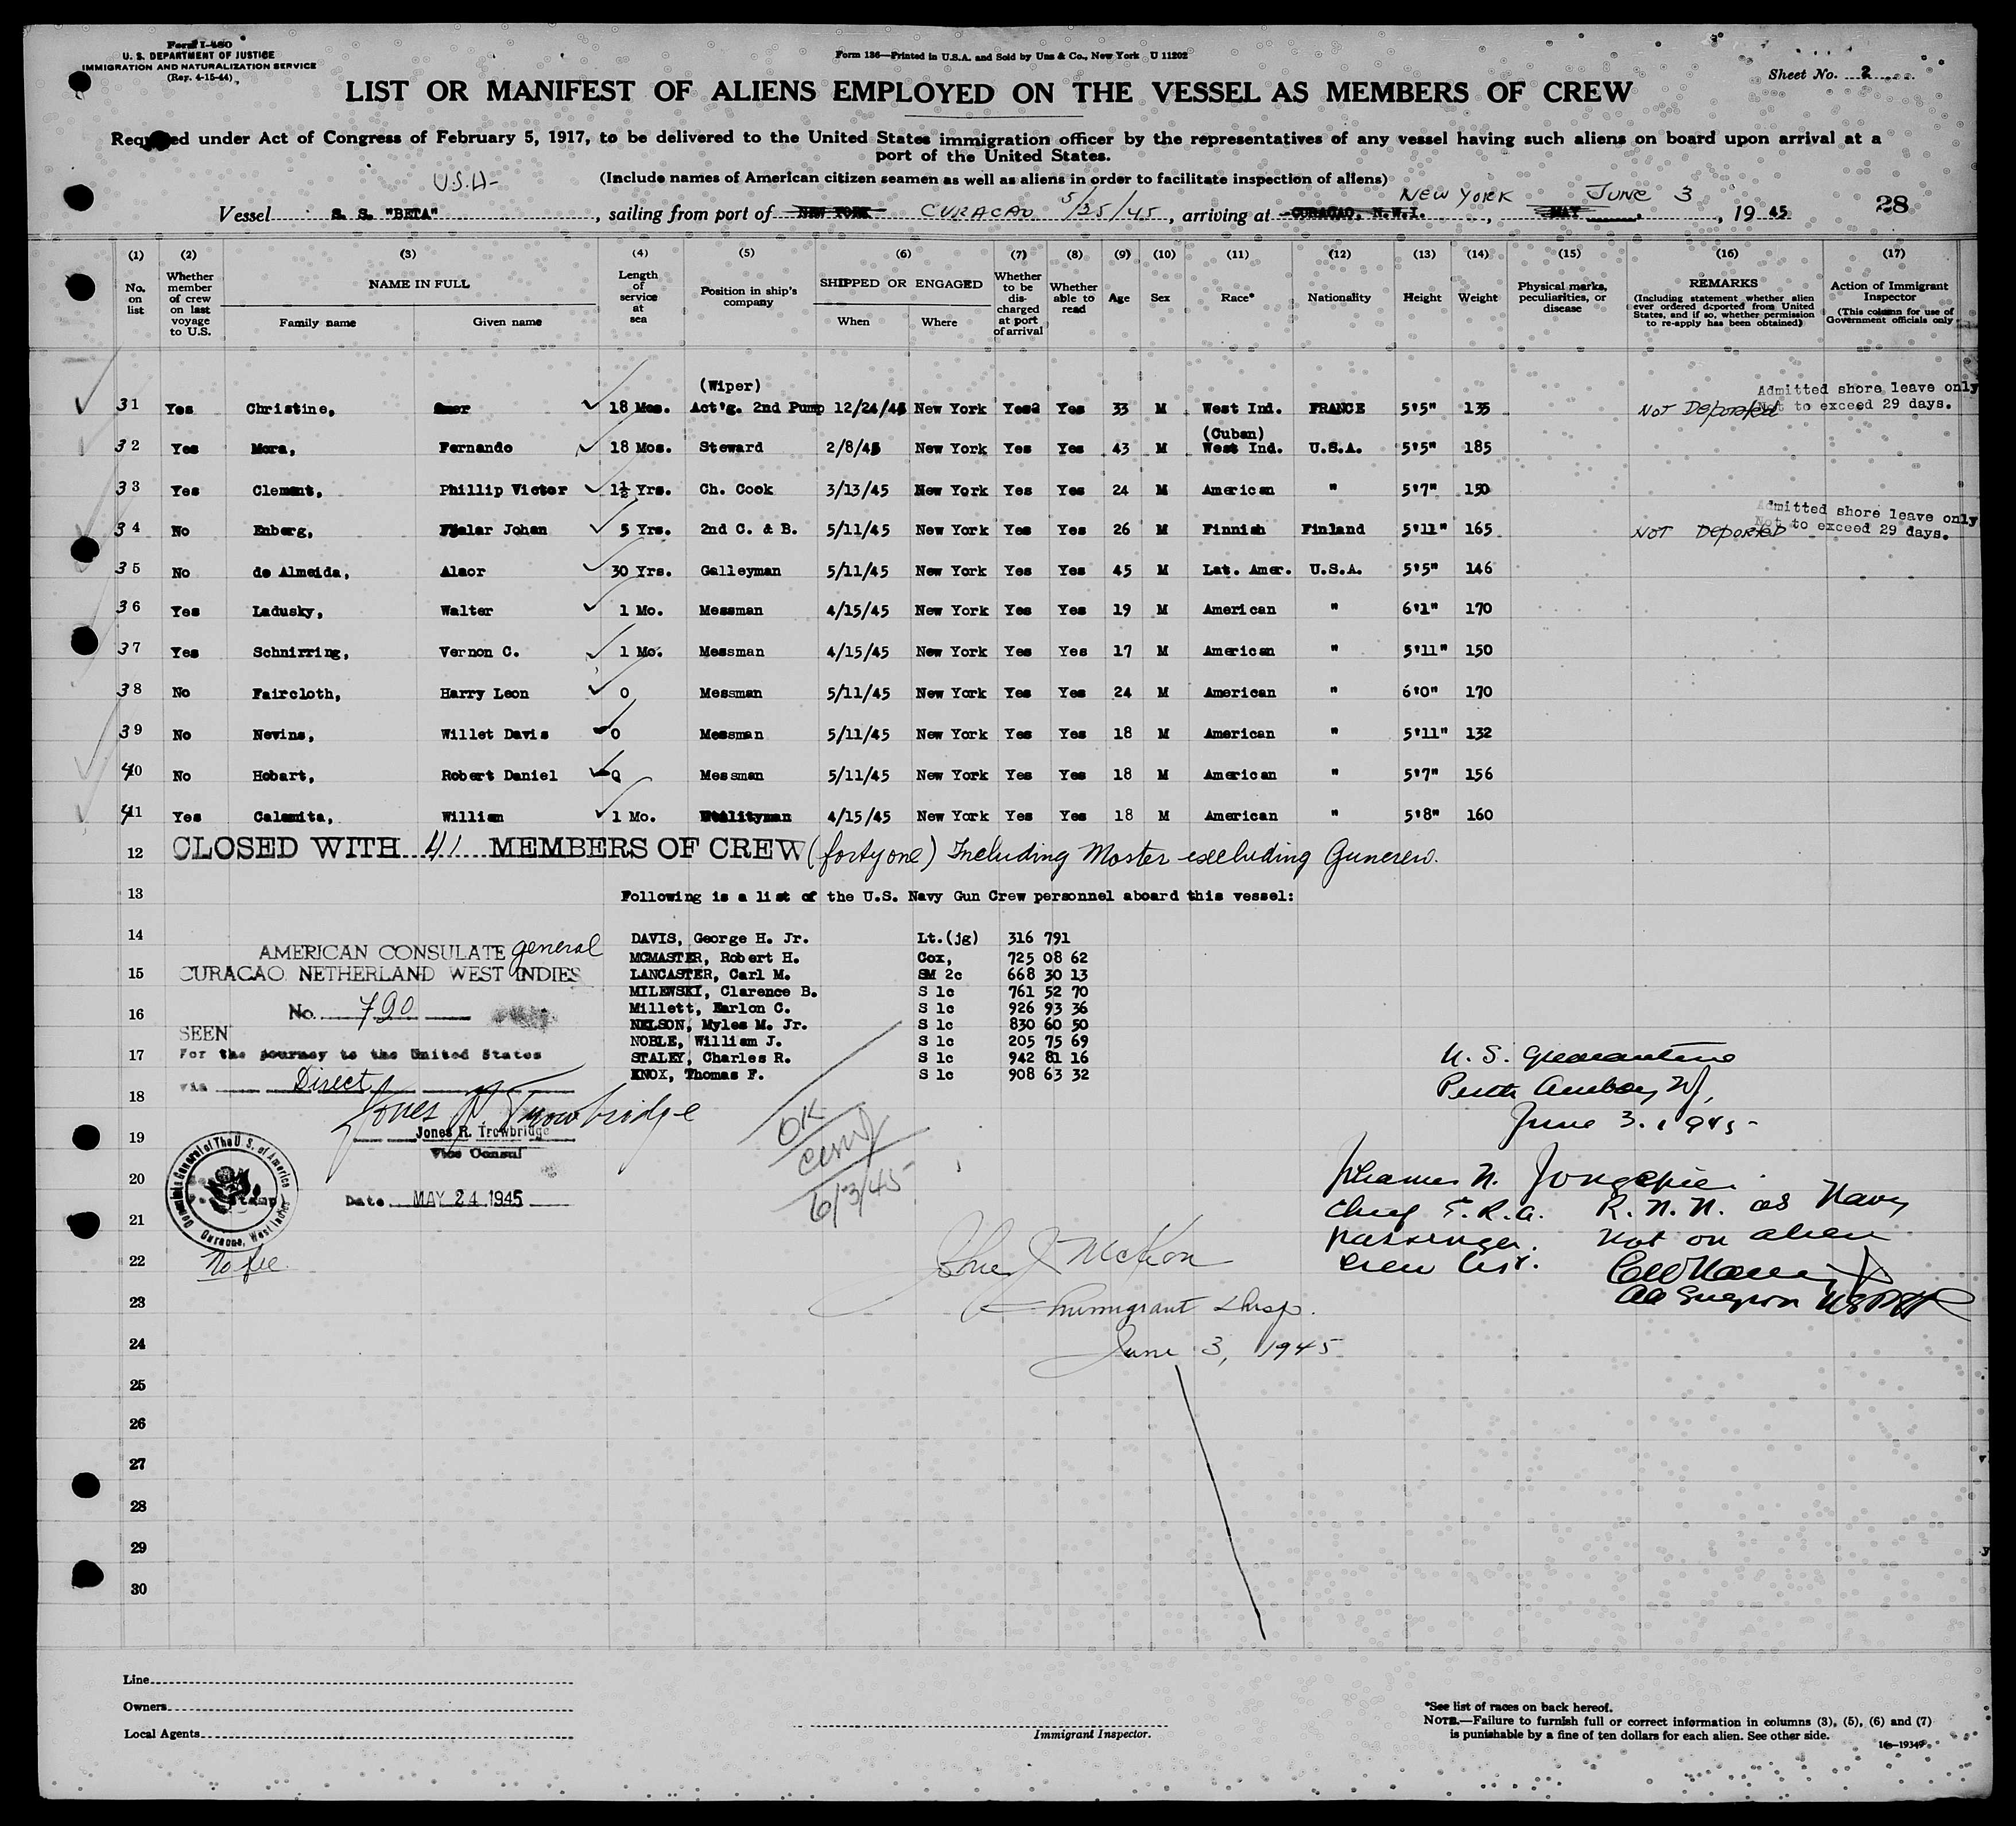 Form I-480
U. S. DEPARTMENT OF JUSTICE
IMMIGRATION AND NATURALIZATION SERVICE
(Rev. 4-15-44)
Form 136—Printed in U.S.A. and Sold by Unz & Co., New York U 11202
Sheet No. 2
LIST OR MANIFEST OF ALIENS EMPLOYED ON THE VESSEL AS MEMBERS OF CREW
Required under Act of Congress of February 5, 1917, to be delivered to the United States immigration officer by the representatives of any vessel having such aliens on board upon arrival at a
port of the United States.
(Include names of American citizen seamen as well as aliens in order to facilitate inspection of aliens)
U.S.A-
Vessel S. S. "BETA", sailing from port of NEW YORK CURACAO 5/25/45, arriving at CURACAO, N.W.I. NEW YORK, MAY JUNE 3, 1945
28
(1) (2) (3) (4) (5) (6) (7) (8) (9) (10) (11) (12) (13) (14) (15) (16) (17)
No. on list
Whether member of crew on last voyage to U.S.
NAME IN FULL
Family name Given name
Length of service at sea
Position in ship's company
SHIPPED OR ENGAGED
When Where
Whether to be discharged at port of arrival
Whether able to read
Age
Sex
Race*
Nationality
Height
Weight
Physical marks, peculiarities, or disease
REMARKS
(Including statement whether alien ever ordered deported from United States, and if so, whether permission to re-apply has been obtained)
Action of Immigrant Inspector
(This column for use of Government officials only)
(Wiper)
31 Yes Christine, 18 Mos. Act'g. 2nd Pump 12/24/44 New York Yes Yes 33 M West Ind. FRANCE 5'5" 135 NOT Deported Admitted shore leave only Not to exceed 29 days.
(Cuban)
32 Yes Mora, Fernando 18 Mos. Steward 2/8/45 New York Yes Yes 43 M West Ind. U.S.A. 5'5" 185
33 Yes Clement, Phillip Victor 1½ Yrs. Ch. Cook 3/13/45 New York Yes Yes 24 M American " 5'7" 150
34 No Enberg, Fjalar Johan 5 Yrs. 2nd C. & B. 5/11/45 New York Yes Yes 26 M Finnish Finland 5'11" 165 NOT Deported Admitted shore leave only Not to exceed 29 days.
35 No de Almeida, Alaor 30 Yrs. Galleyman 5/11/45 New York Yes Yes 45 M Lat. Amer. U.S.A. 5'5" 146
36 Yes Ladusky, Walter 1 Mo. Messman 4/15/45 New York Yes Yes 19 M American " 6'1" 170
37 Yes Schnirring, Vernon C. 1 Mo. Messman 4/15/45 New York Yes Yes 17 M American " 5'11" 150
38 No Faircloth, Harry Leon 0 Messman 5/11/45 New York Yes Yes 24 M American " 6'0" 170
39 No Nevins, Willet Davis 0 Messman 5/11/45 New York Yes Yes 18 M American " 5'11" 132
40 No Hobart, Robert Daniel 0 Messman 5/11/45 New York Yes Yes 18 M American " 5'7" 156
41 Yes Calamita, William 1 Mo. Utilityman 4/15/45 New York Yes Yes 18 M American " 5'8" 160
12 CLOSED WITH 41 MEMBERS OF CREW (forty one) Including Master excluding Guncrew.
13 Following is a list of the U.S. Navy Gun Crew personnel aboard this vessel:
14 DAVIS, George H. Jr. Lt.(jg) 316 791
MCMASTER, Robert H. Cox, 725 08 62
15 LANCASTER, Carl M. SM 2c 668 30 13
MILEWSKI, Clarence B. S 1c 761 52 70
16 Millett, Earlon C. S 1c 926 93 36
NELSON, Myles M. Jr. S 1c 830 60 50
17 NOBLE, William J. S 1c 205 75 69
STALEY, Charles R. S 1c 942 81 16
KNOX, Thomas F. S 1c 908 63 32
AMERICAN CONSULATE general
CURACAO NETHERLAND WEST INDIES
No. 790
SEEN
For the journey to the United States
via Direct
Jones R. Trowbridge
Jones R. Trowbridge
Vice Consul
Date MAY 24 1945
Consulate General of The U. S. of America
Stamp
Curacao, West Indies
No fee.
OK
6/3/45
John J McKon
Immigrant Insp.
June 3, 1945
U. S. Quarantine
Perth Amboy NJ,
June 3, 1945-
Chief T.R.A. R.N.N. as Navy
passenger. not on alien
crew list.
18
19
20
21
22
23
24
25
26
27
28
29
30
Line
Owners
Local Agents
Immigrant Inspector.
*See list of races on back hereof.
NOTE.—Failure to furnish full or correct information in columns (3), (5), (6) and (7)
is punishable by a fine of ten dollars for each alien. See other side.
16—19347